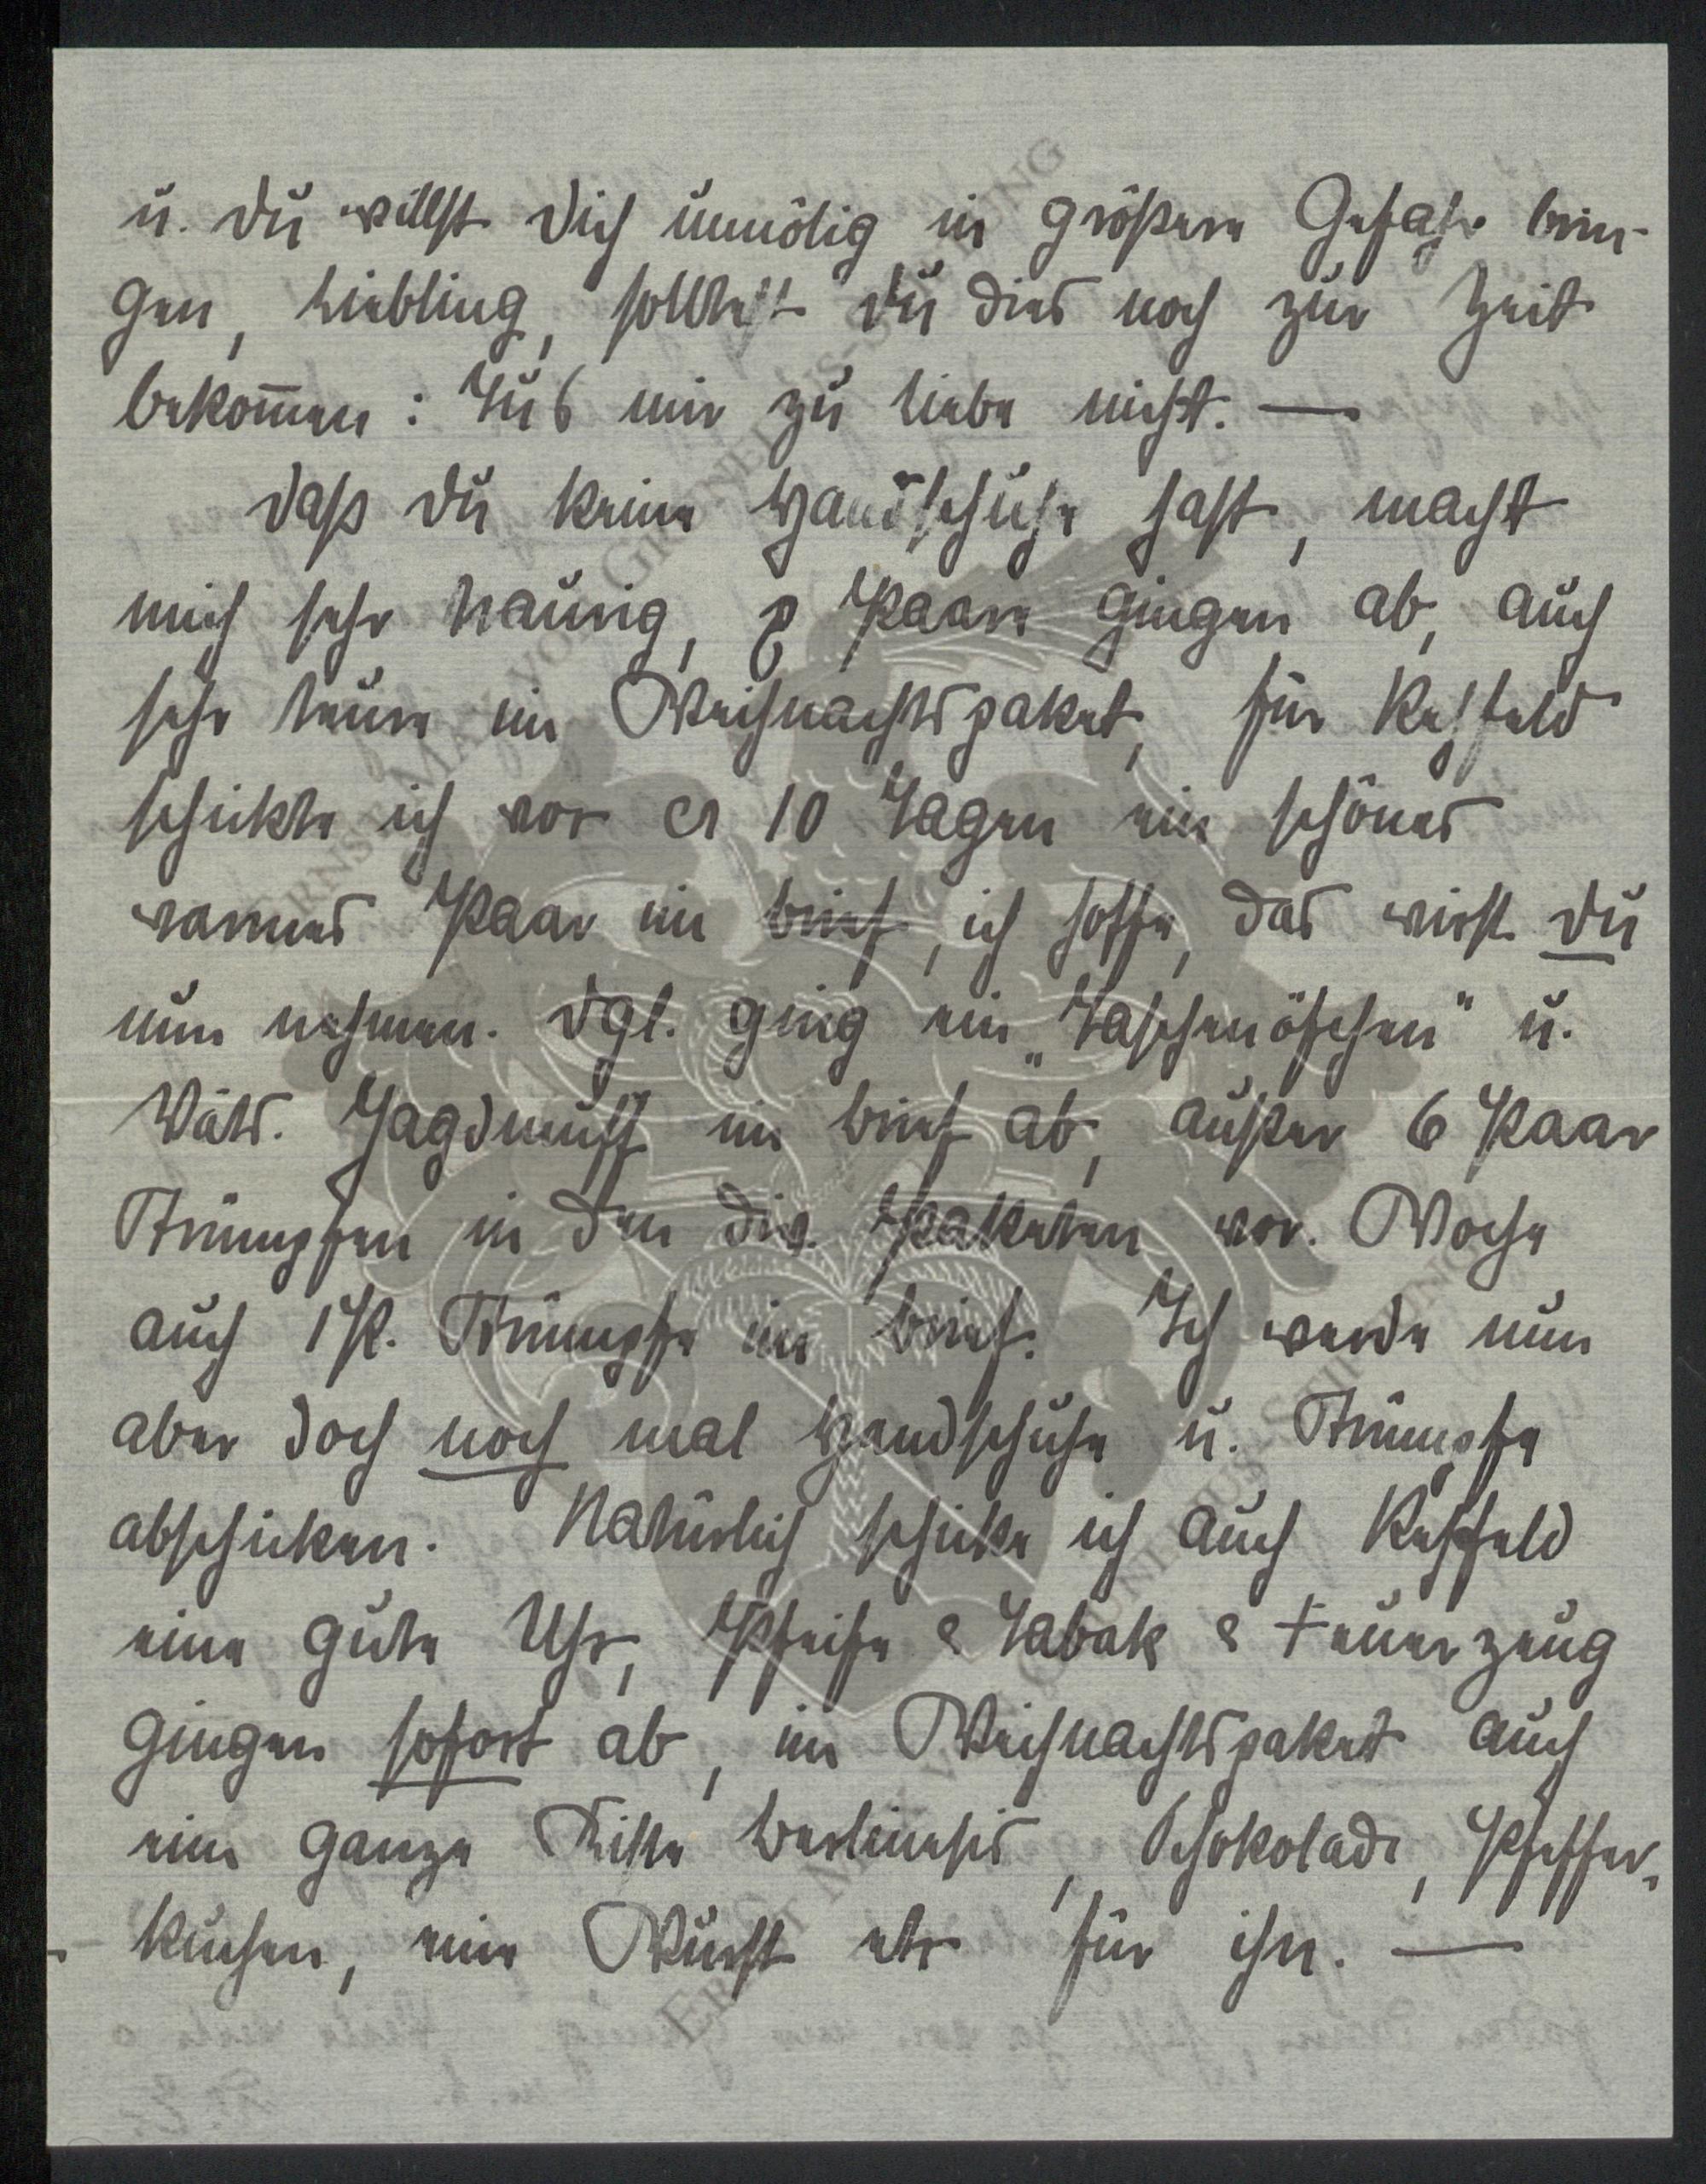 u. Du willst Dich unnötig in größere Gefahr brin-
gen, Liebling, solltest Du dies noch zur Zeit
bekom̅en: Tu's mir zu liebe nicht. —
Daß Du keine Handschuhe hast, macht
mich sehr traurig, 2 Paare gingen ab, auch
sehr teure im Weihnachtspaket, für Rehfeld
schickte ich vor ca 10 Tagen ein schönes
warmes Paar im Brief, ich hoffe, das wirst Du
nun nehmen. Dgl. ging ein „Taschenöfchen" u.
Väts. Jagdmuff im Brief ab, außer 6 Paar
Strümpfen in den div. Paketen vor. Woche
auch 1 P. Strümpfe im Brief. Ich werde nun
aber doch noch mal Handschuhe u. Strümpfe
abschicken. Natürlich schicke ich auch Rehfeld
eine gute Uhr, Pfeife & Tabak & Feuerzeug
gingen sofort ab, im Weihnachtspaket auch
eine ganze Kiste Schokolade, Pfeffer-
kuchen, eine Wurst etc für ihn. —
ERNST MAX VON GRUNELIUS-STIFTUNG
ERNST MAX VON GRUNELIUS-STIFTUNG